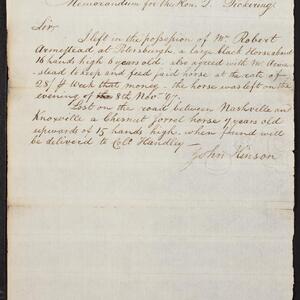 Memorandum for the Hon. T. Pickering
Sir
I left in the possession of Mr Robert
Armestead at Petersburgh, a large black Horse about
16 hands high 6 years old. also agreed with Mr Arme-
stead to keep and feed said horse at the rate of
28/ Week that money. the horse was left on the
evening of the 8th Novr 97.
Lost on the road between Nashville an
Knoxville a Chesnut Sorrel horse 7 years old
upwards of 15 hands high. when found will
be deliverd to Colo Handley
John Hinson